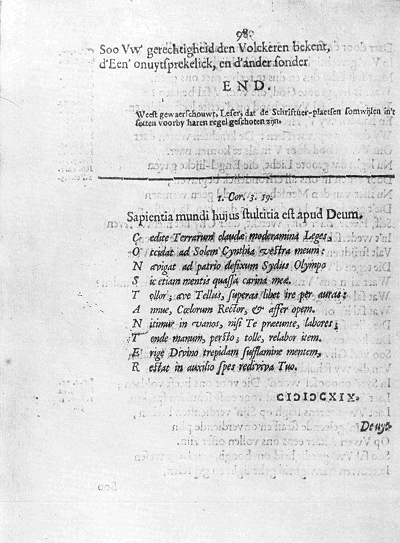 98.
Soo Vw' gerechtigheid den Volckeren bekent,
d'Een' onuytsprekelick, en d'ander sonder
END.
Weest gewaerschouwt, Leser, dat de Schriftuer-plaetsen somwijlen in't
setten voorby haren regel geschoten zijn.
1. Cor. 3. 19.
Sapientia mundi hujus stultitia est apud Deum.
C edite Terrarum claudæ moderamina Leges,
O ccidat ad Solem Cynthia vestra meum:
N avigat ad patrio defixum Sydus Olympo
S ic etiam mentis quassa carina meæ.
T ollor; ave Tellus, superas libet ire per auras:
A nnue, Cœlorum Rector, & affer opem.
N itimur in vanos, nisi Te praeunte, labores;
T ende manum, persto; tolle, relabor item.
E rige Divino trepidam sufflamine mentem,
R estat in auxilio spes rediviva Tuo.
CIↃIↃCXIX.
De uyt-